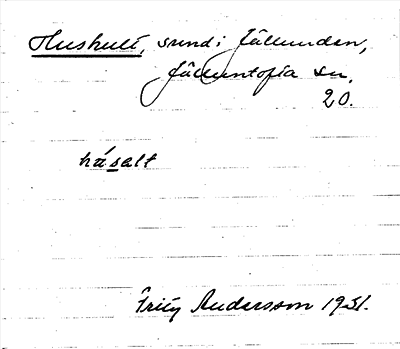 Huskult, sund i Fällunden,
Fälluntofta sn,
20.
hásalt
Fritz Andersson 1931.